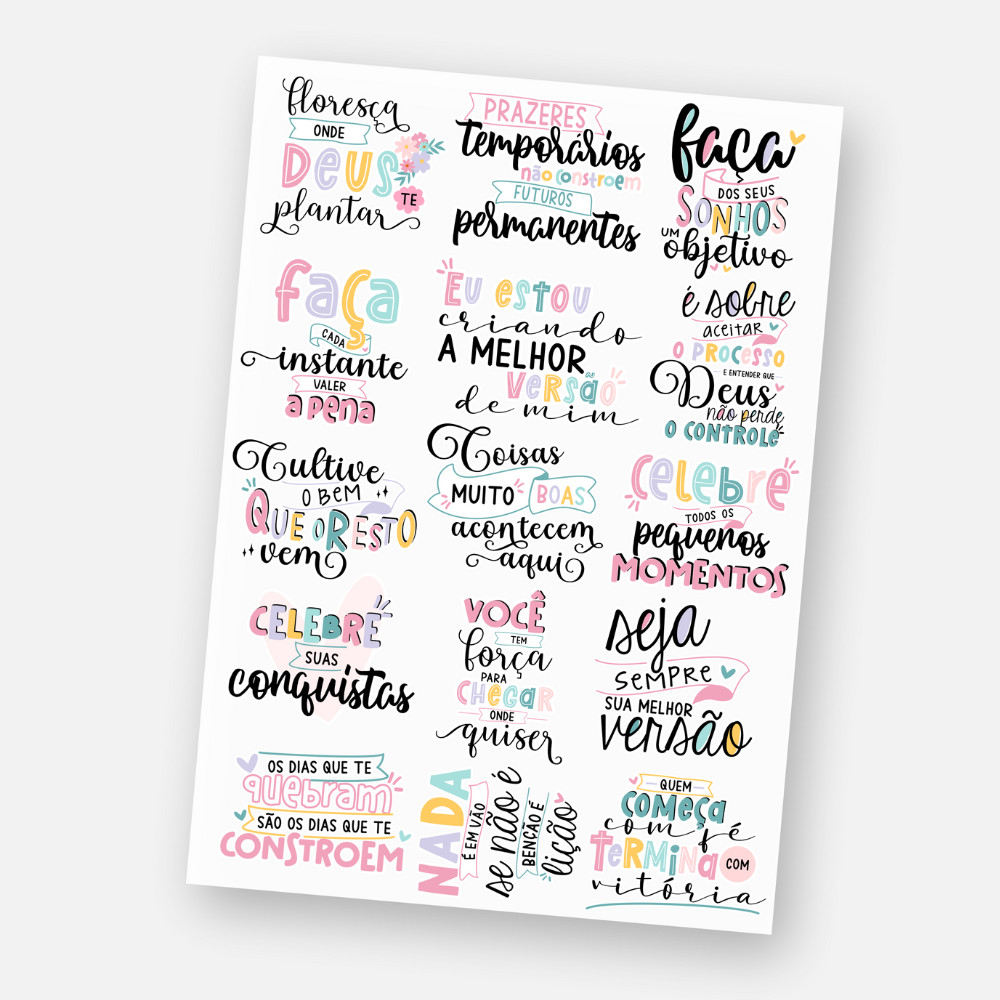 floresça
ONDE
DEUS
TE
plantar
PRAZERES
temporários
não constroem
FUTUROS
permanentes
faça
DOS SEUS
SONHOS
UM
objetivo
faça
CADA
instante
VALER
a pena
Eu estou
criando
A MELHOR
versão
de mim
é sobre
aceitar
O PROCESSO
E ENTENDER QUE
Deus
não perde
O CONTROLE
Cultive
O BEM
QUE O RESTO
vem
Coisas
MUITO BOAS
acontecem
aqui
Celebre
TODOS OS
pequenos
MOMENTOS
CELEBRE
SUAS
conquistas
VOCÊ
TEM
força
PARA
CHEGAR
ONDE
quiser
seja
SEMPRE
SUA MELHOR
versão
OS DIAS QUE TE
quebram
SÃO OS DIAS QUE TE
CONSTROEM
NADA
É EM VÃO
se não é
BENÇÃO É
lição
QUEM
COMEÇA
com fé
TERMINA
COM
vitória